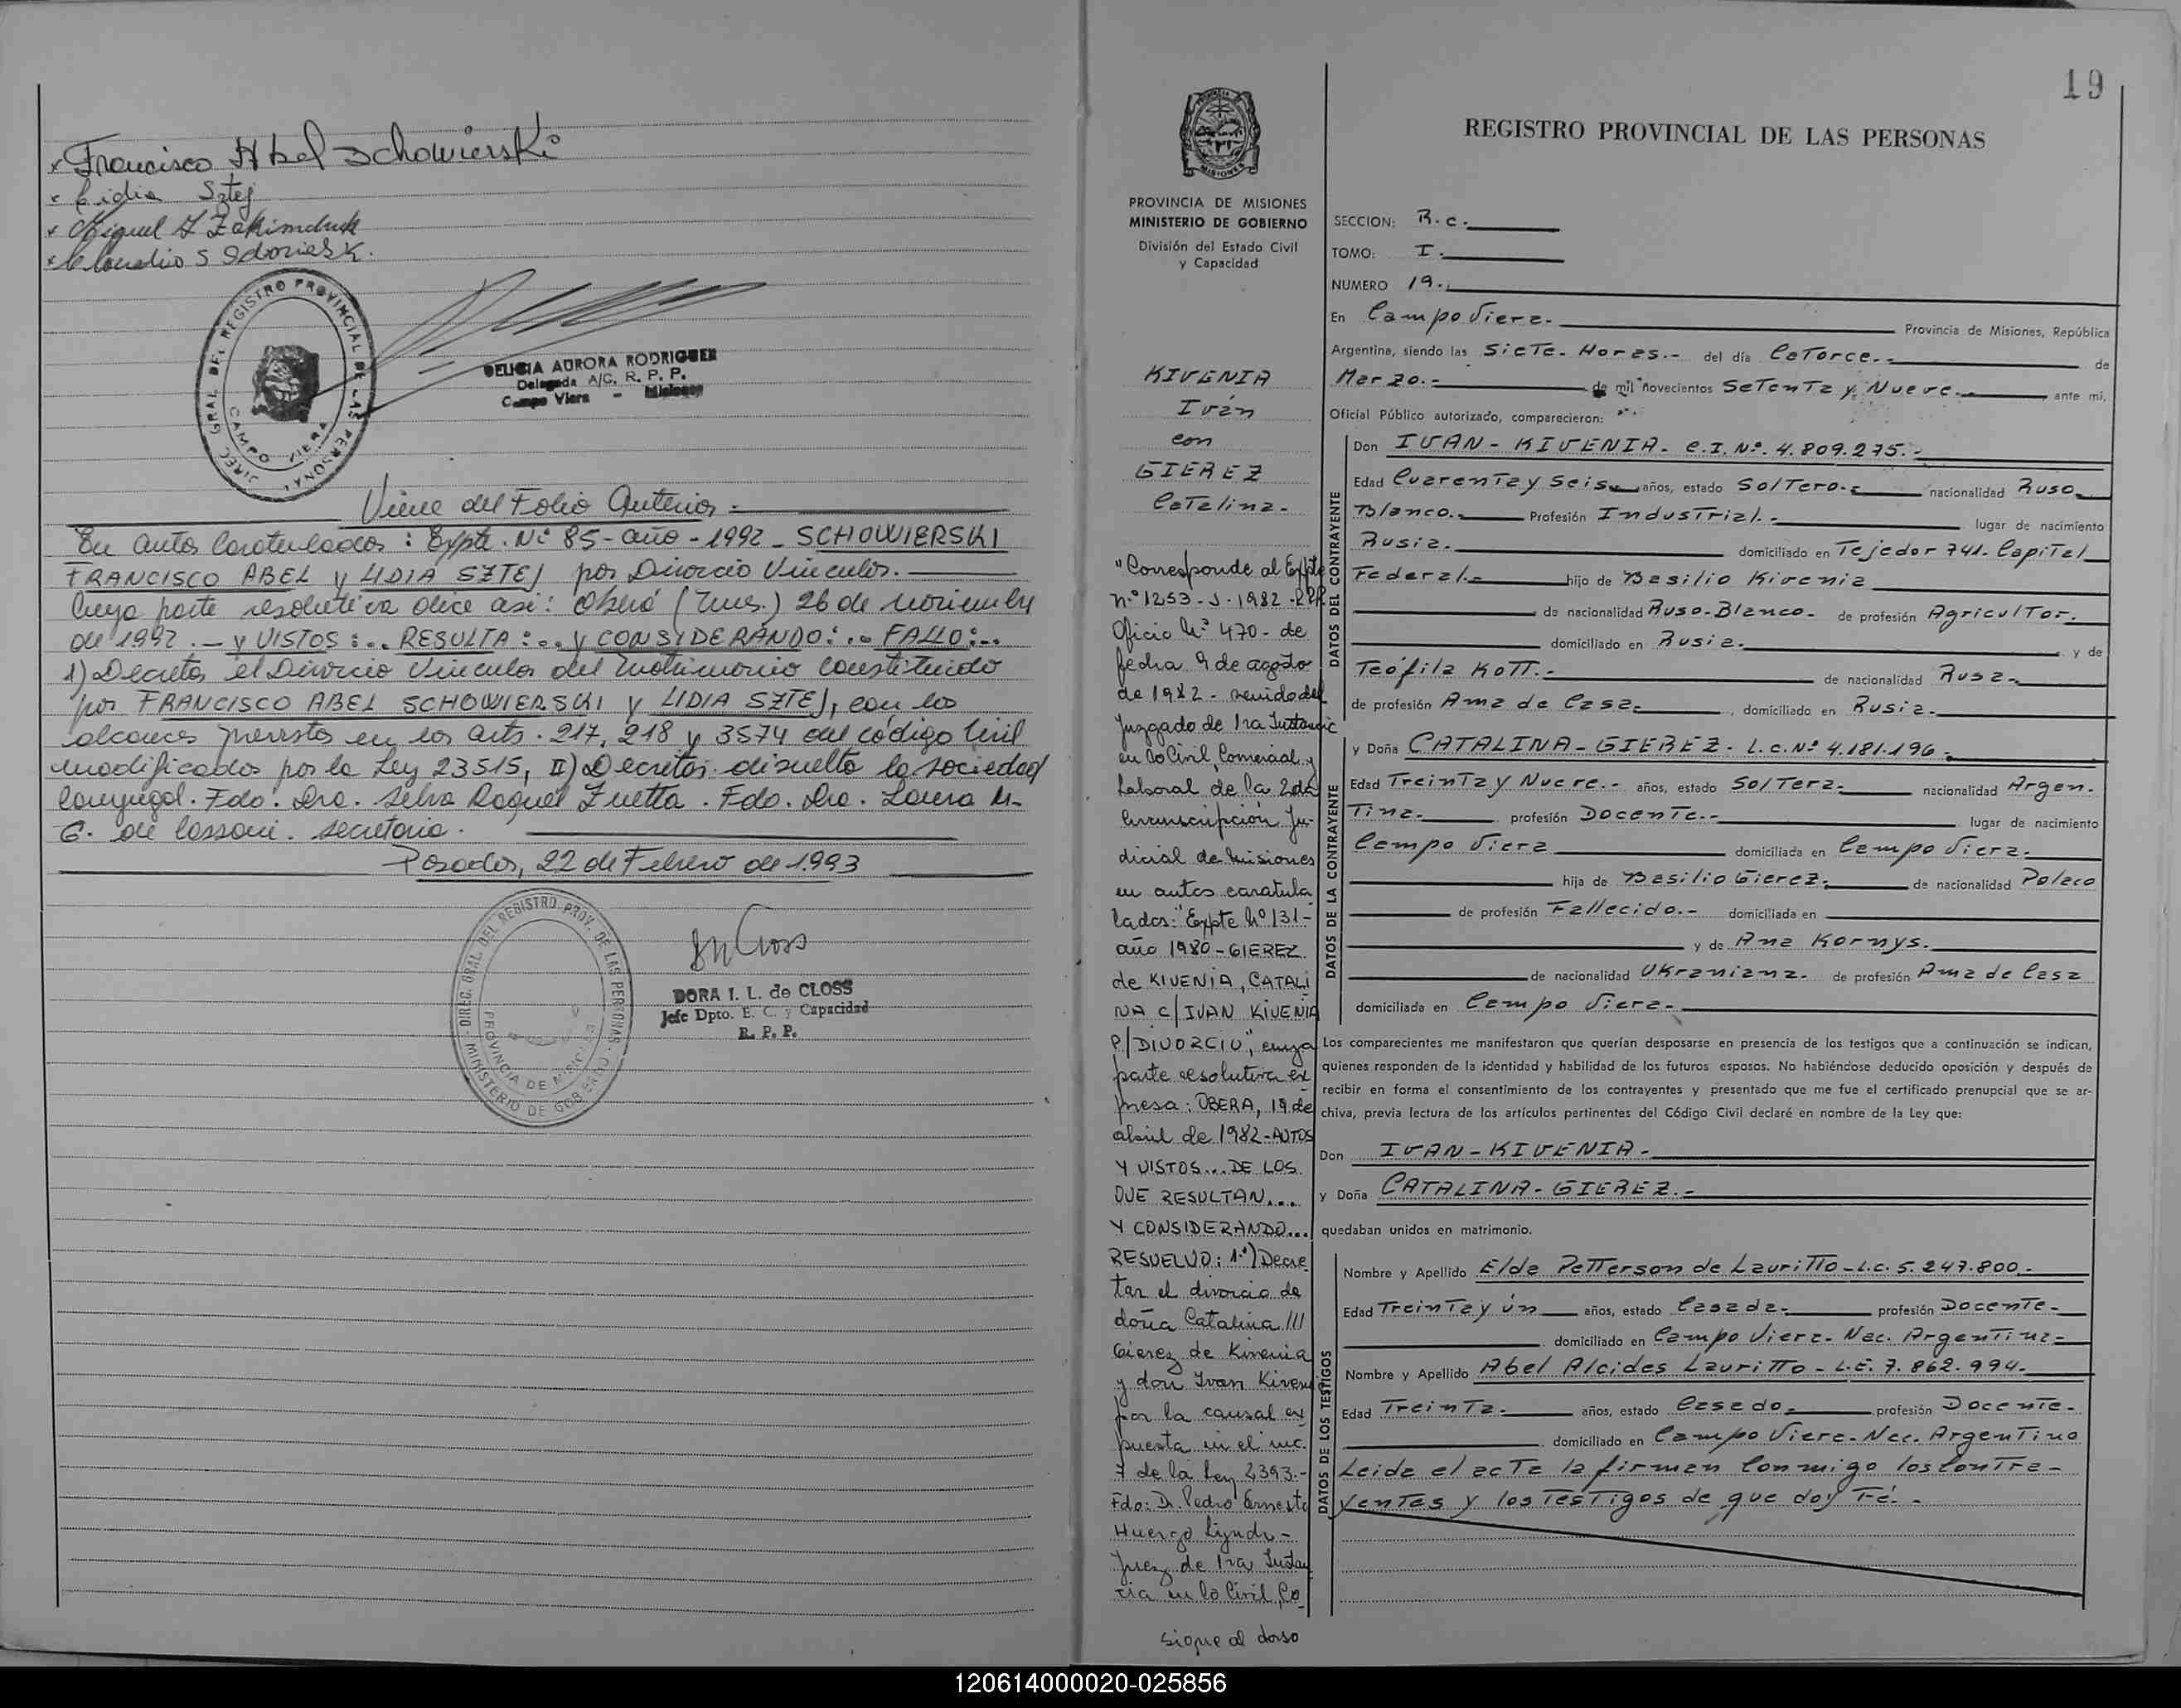 x Francisco Abel Schowierski
x Lidia Sztej
x Miguel A Zakimchuk
x Claudio S
DIREC. GRAL. DEL REGISTRO PROVINCIAL DE LAS PERSONAS
CAMPO VIERA
DELICIA AURORA RODRIGUEZ
Delegada A/C. R. P. P.
Campo Viera - Misiones
Viene del Folio Anterior.-
En autos Caratulados: Expte. Nº 85-año-1992- SCHOWIERSKI
FRANCISCO ABEL y LIDIA SZTEJ por Divorcio Vincular.
Cuya parte resolutiva dice asi: Oberá (Mnes.) 26 de noviembre
de 1992.- y VISTOS:.. RESULTA:.. y CONSIDERANDO:.. FALLO:..
1) Decretar el Divorcio Vincular del matrimonio constituido
por FRANCISCO ABEL SCHOWIERSKI y LIDIA SZTEJ, con los
alcances previstos en los arts. 217, 218 y 3574 del código Civil
modificados por la Ley 23515, II) Decretar disuelta la sociedad
Conyugal. Fdo. Dra. Selva Raquel Zuetta. Fdo. Dra. Laura M.
G. de Cassoni. Secretaria.
Posadas, 22 de Febrero de 1993
DIREC. GRAL. DEL REGISTRO PROV. DE LAS PERSONAS
PROVINCIA DE MISIONES
MINISTERIO DE GOBIERNO
DORA I. L. de CLOSS
Jefe Dpto. E. C. y Capacidad
R. P. P.
19
MISIONES
PROVINCIA DE MISIONES
MINISTERIO DE GOBIERNO
División del Estado Civil
y Capacidad
KIVENIA
Iván
con
GIEREZ
Catalina.-
"Corresponde al Expte
nº 1253-J-1982-RPP
Oficio Nº 470- de
fecha 9 de agosto
de 1982- venido del
Juzgado de 1ra Instancia
en lo Civil, Comercial y
Laboral de la 2da
Circunscripción Ju-
dicial de Misiones
en autos caratula
lados: "Expte Nº 131-
año 1980-GIEREZ
de KIVENIA, CATALI
NA C/ IVAN KIVENIA
P/DIVORCIO", cuya
parte resolutiva ex
presa: OBERA, 19 de
abril de 1982-AUTOS
Y VISTOS... DE LOS
QUE RESULTAN....
Y CONSIDERANDO...
RESUELVO: 1º) Decre
tar el divorcio de
doña Catalina ///
Gierez de Kivenia
y don Ivan Kiveni
por la causal ex
puesta en el inc.
7 de la Ley 2393.-
Fdo: Dr. Pedro Ernesto
Huergo
Juez de 1ra Instan
cia en lo Civil, Co
sigue al dorso
REGISTRO PROVINCIAL DE LAS PERSONAS
SECCION: R.c.
TOMO: I.
NUMERO 19.
En Campo Viera.- Provincia de Misiones, República
Argentina, siendo las Siete. Horas.- del día Catorce.- de
Marzo.- de mil novecientos Setenta y Nueve.- ante mi,
Oficial Público autorizado, comparecieron:
DATOS DEL CONTRAYENTE
Don IVAN-KIVENIA. C.I. Nº. 4.809.275.-
Edad Cuarenta y Seis. años, estado Soltero.- nacionalidad Ruso
Blanco.- Profesión Industrial.- lugar de nacimiento
Rusia. domiciliado en Tejedor 741. Capital
Federal.- hijo de Basilio Kivenia
de nacionalidad Ruso-Blanco- de profesión Agricultor.
domiciliado en Rusia. y de
Teófila Kott.- de nacionalidad Rusa.
de profesión Ama de Casa. , domiciliado en Rusia.
DATOS DE LA CONTRAYENTE
y Doña CATALINA-GIEREZ- L.C. Nº 4.181.196-
Edad Treinta y Nueve.- años, estado Soltera- nacionalidad Argen.
Tina. profesión Docente.- lugar de nacimiento
Campo Viera domiciliada en Campo Viera.
hija de Basilio Gierez. de nacionalidad Polaco
de profesión Fallecido.- domiciliada en
y de Ana Kornys.
de nacionalidad Ukraniana. de profesión Ama de Casa
domiciliada en Campo Viera-
Los comparecientes me manifestaron que querían desposarse en presencia de los testigos que a continuación se indican,
quienes responden de la identidad y habilidad de los futuros esposos. No habiéndose deducido oposición y después de
recibir en forma el consentimiento de los contrayentes y presentado que me fue el certificado prenupcial que se ar-
chiva, previa lectura de los artículos pertinentes del Código Civil declaré en nombre de la Ley que:
Don IVAN-KIVENIA-
y Doña CATALINA-GIEREZ.-
quedaban unidos en matrimonio.
DATOS DE LOS TESTIGOS
Nombre y Apellido Elda Petterson de Lauritto-L.C. 5.247.800.-
Edad Treinta y ún años, estado Casada- profesión Docente-
domiciliado en Campo Viera- Nac. Argentina-
Nombre y Apellido Abel Alcides Lauritto-L.E. 7.862.994.
Edad Treinta. años, estado Casado. profesión Docente-
domiciliado en Campo Viera-Nac. Argentino
Leida el acta la firman Conmigo los Contra-
yentes y los Testigos de que doy Fé.-
120614000020-025856